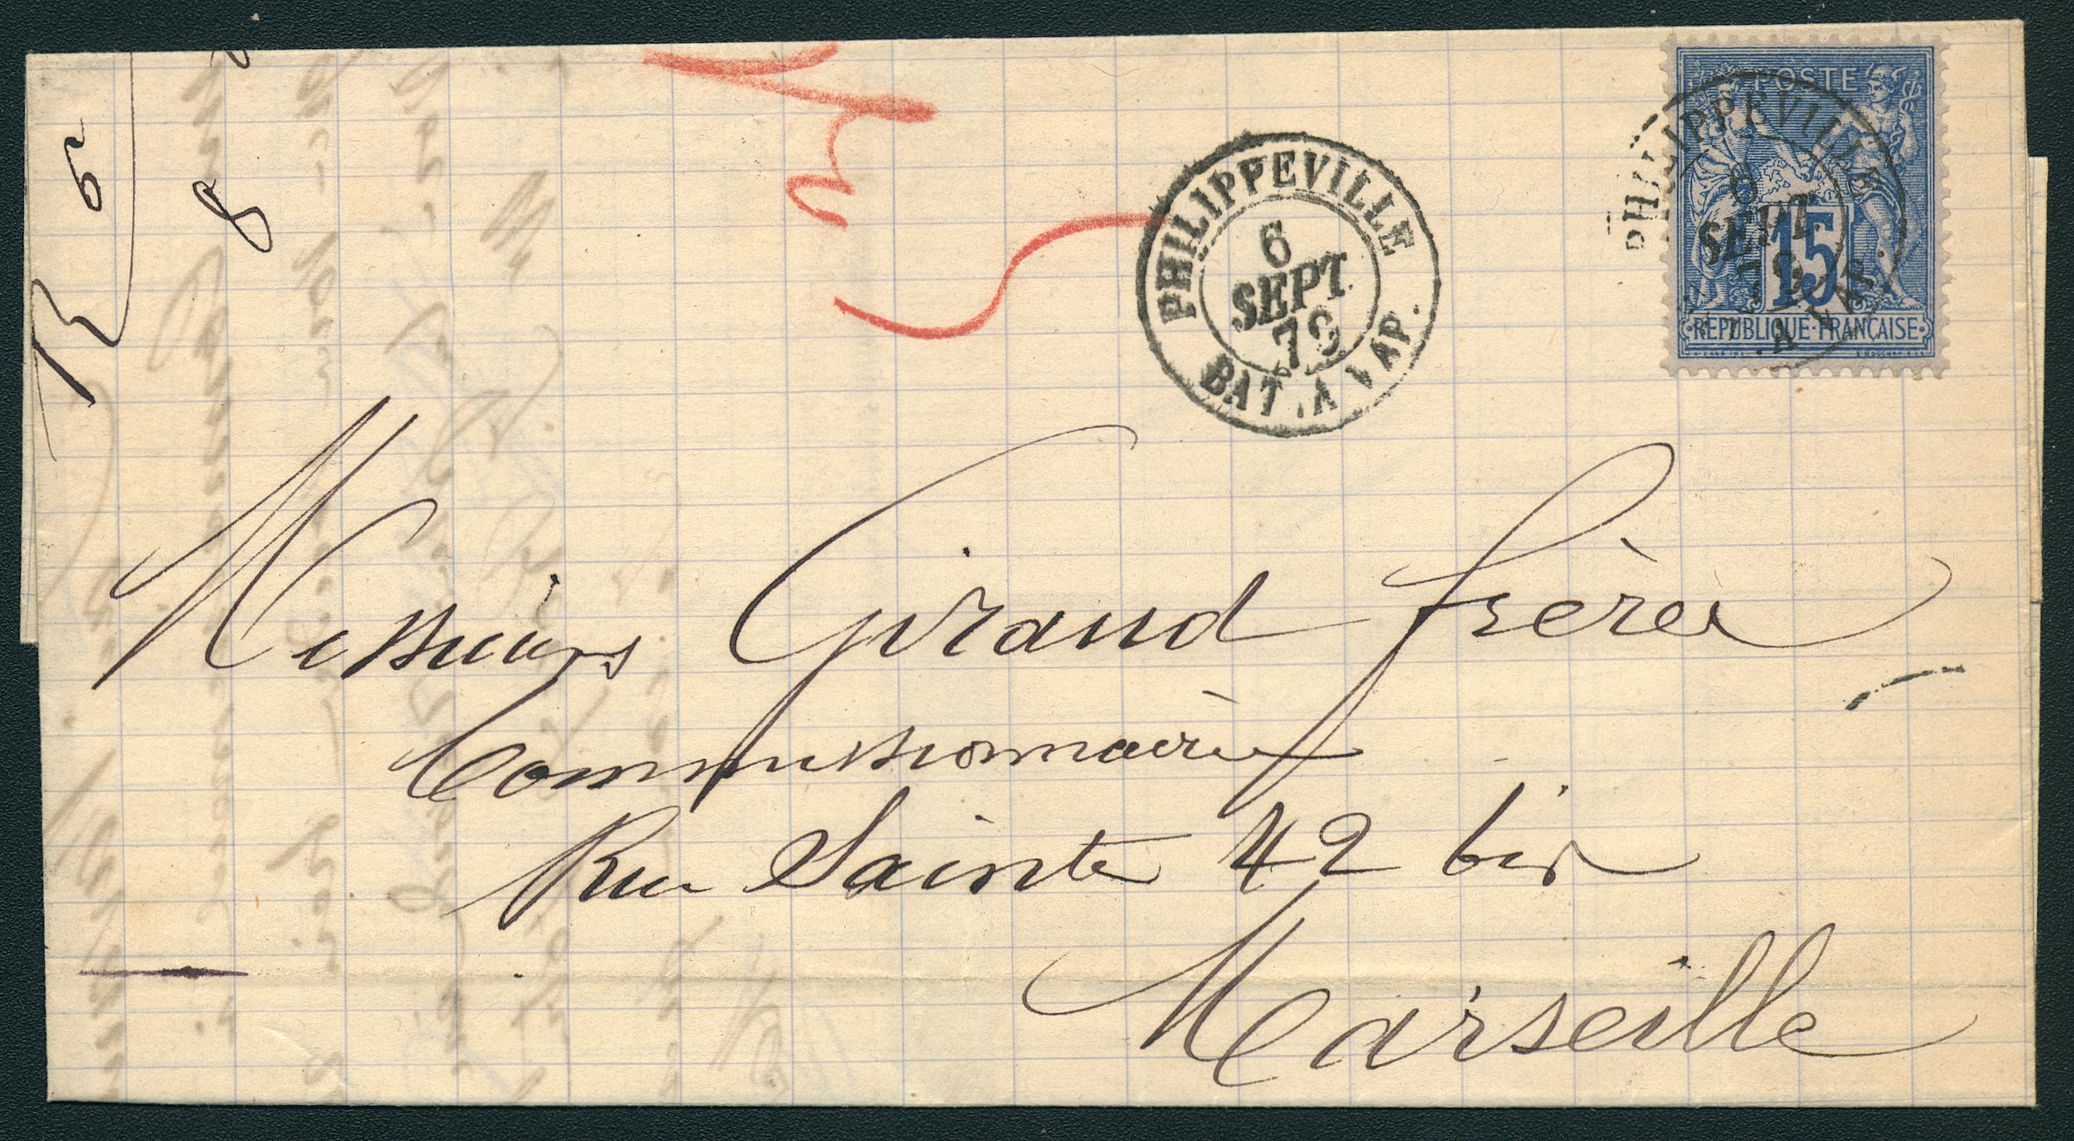 R 5
8
POSTE
15
REPUBLIQUE FRANÇAISE
PHILIPPEVILLE
6
SEPT.
79
BAT. A VAP.
PHILIPPEVILLE
6
SEPT.
79
A VAP.
Messieurs Girand frères
Commissionnaires
Rue Sainte 42 bis
Marseille